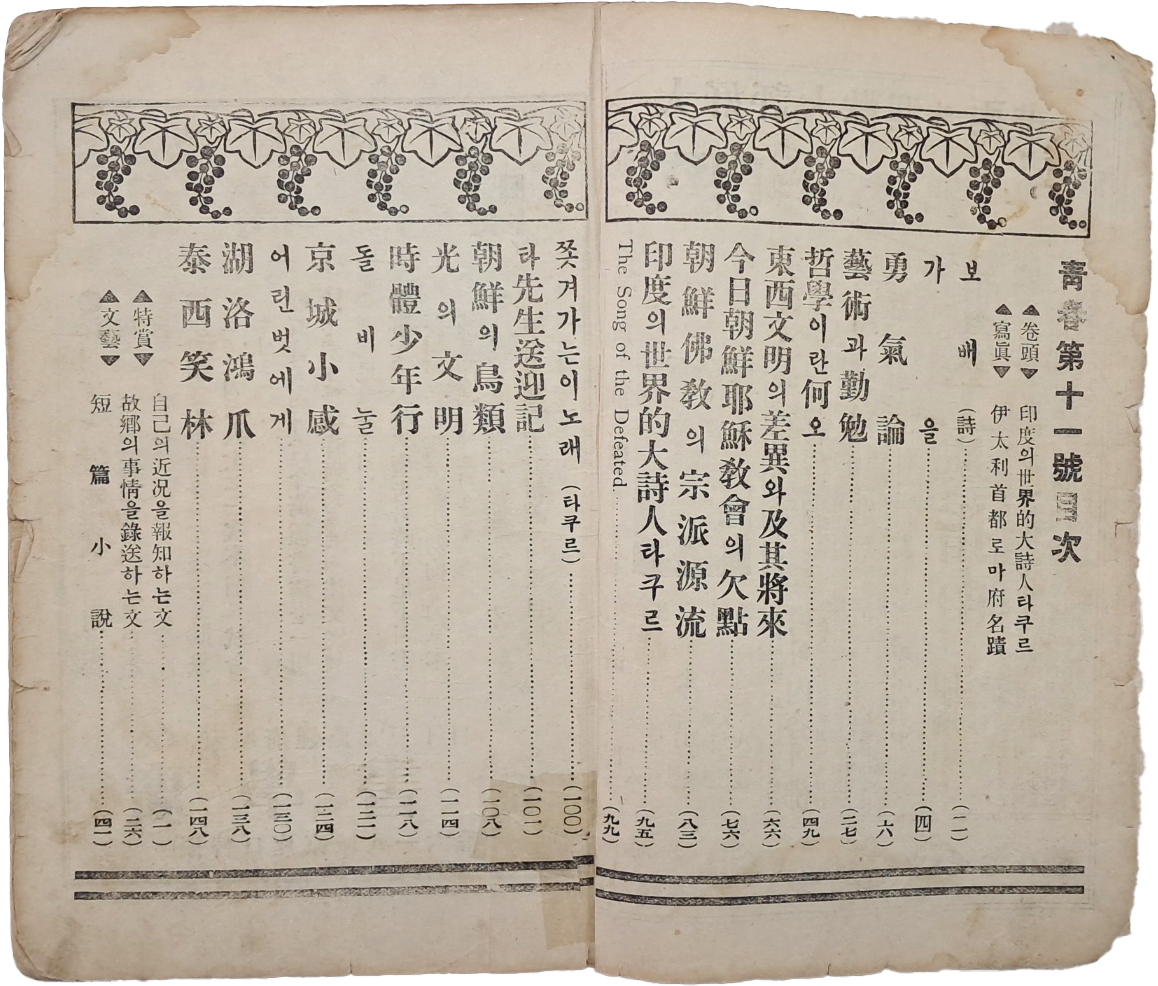 靑春第十一號目次
▲卷頭▼ 印度의世界的大詩人타쿠르
▲寫眞▼ 伊太利首都로마府名蹟
보배(詩)……(二)
가을……(四)
勇氣論……(六)
藝術과勤勉……(二七)
哲學이란何오……(四九)
東西文明의差異와及其將來……(六六)
今日朝鮮耶穌敎會의欠點……(七六)
朝鮮佛敎의宗派源流……(八三)
印度의世界的大詩人타쿠르……(九五)
The Song of the Defeated.……(九九)
쫏겨가는이노래(타쿠르)……(一〇〇)
타先生送迎記……(一〇一)
朝鮮의鳥類……(一〇八)
光의文明……(一一四)
時體少年行……(一一八)
돌비눌……(一二一)
京城小感……(一二四)
어린벗에게……(一三〇)
湖洛鴻爪……(一三八)
泰西笑林……(一四八)
▲特賞▼ 自己의近况을報知하는文……(一)
▲文藝▼ 故鄕의事情을錄送하는文……(二六)
短篇小說……(四一)